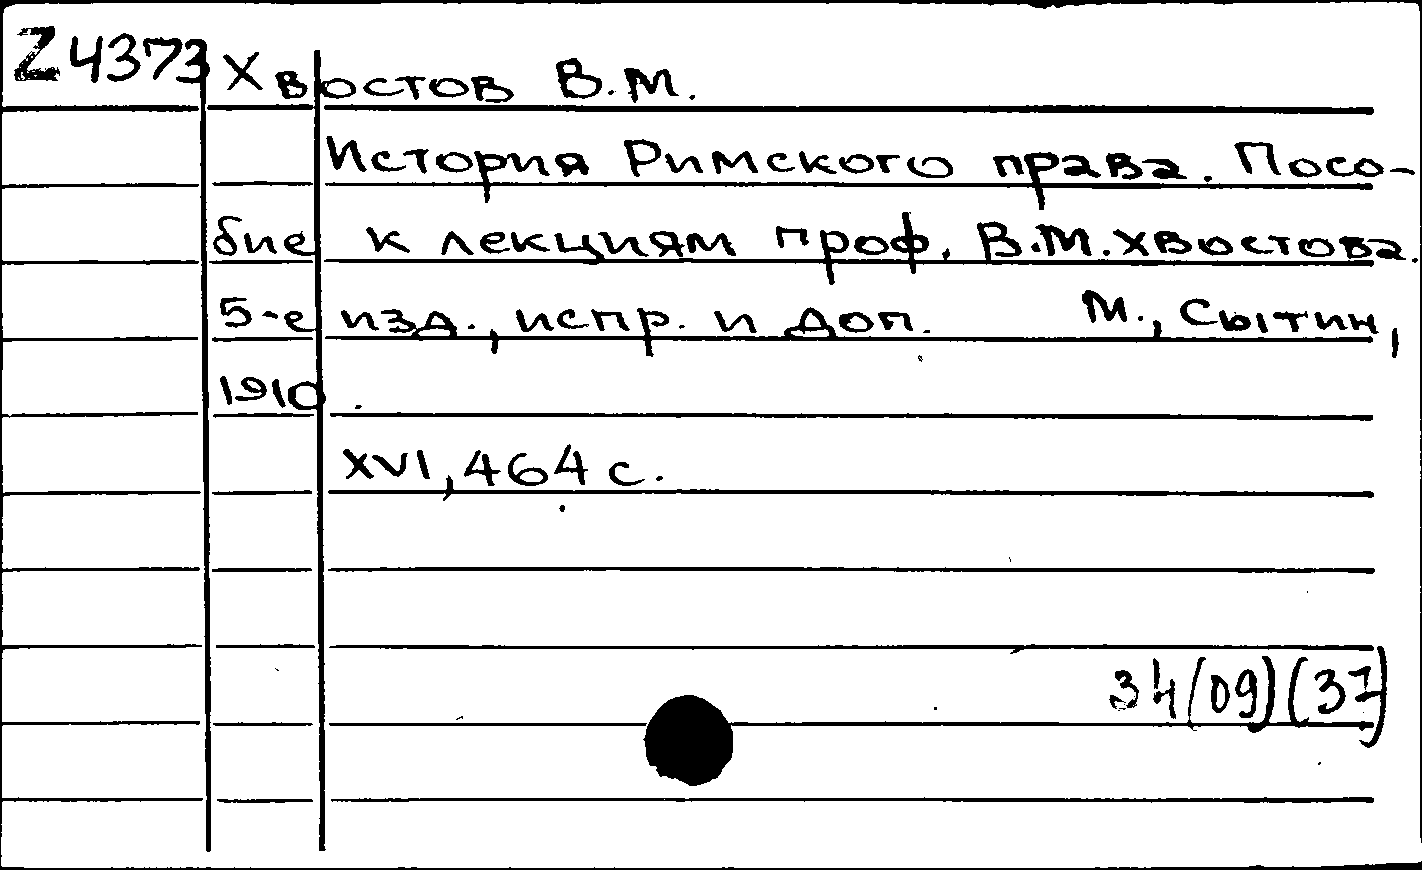 Z 4373 Хвостов В.М.
История Римского права. Посо-
бие к лекциям проф. В.М.Хвостова.
5-е изд., испр. и доп. М., Сытин,
1910.
XVI, 464 с.
34(09)(37)